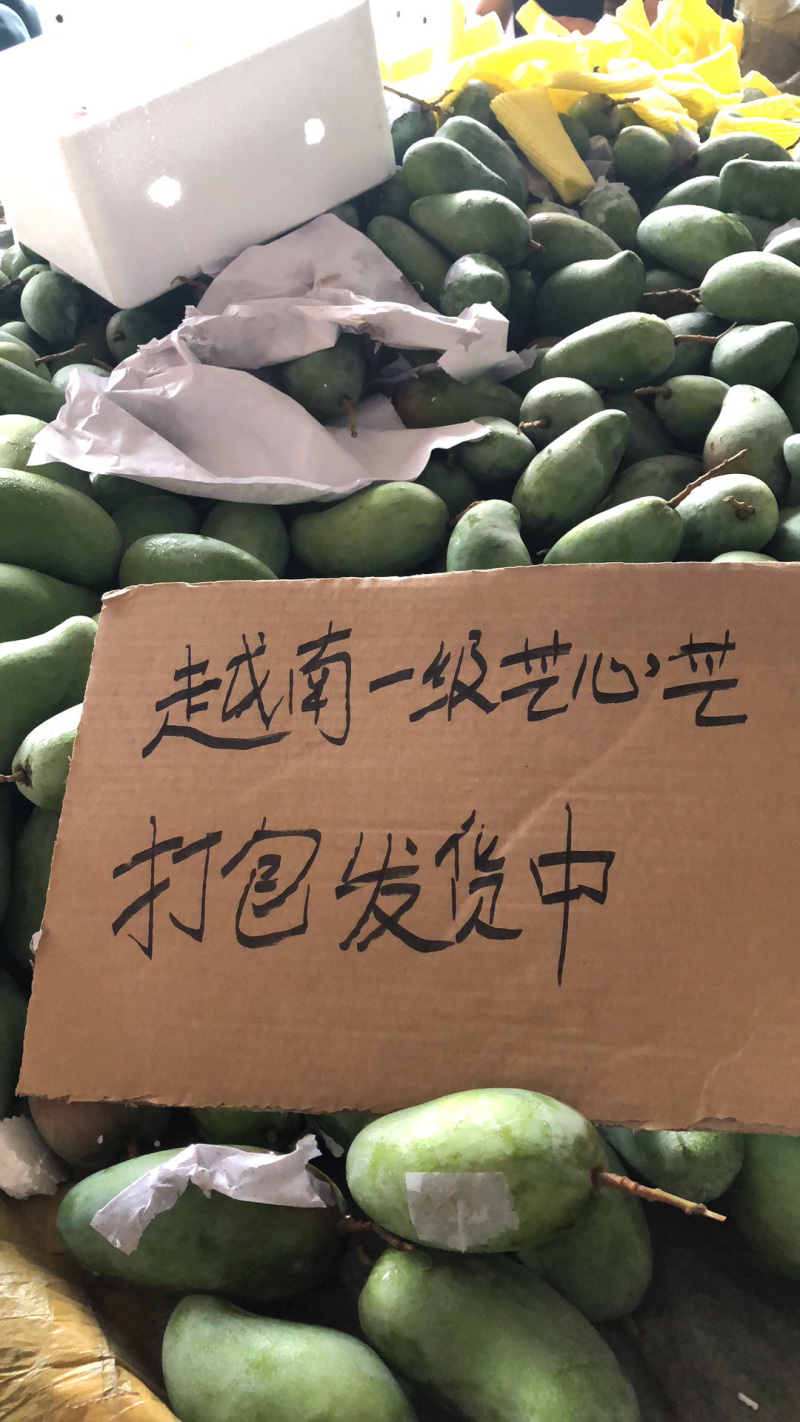 越南一级芒心芒
打包发货中